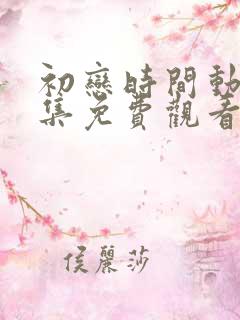 初戀時間動
集免費觀看
侯麗莎